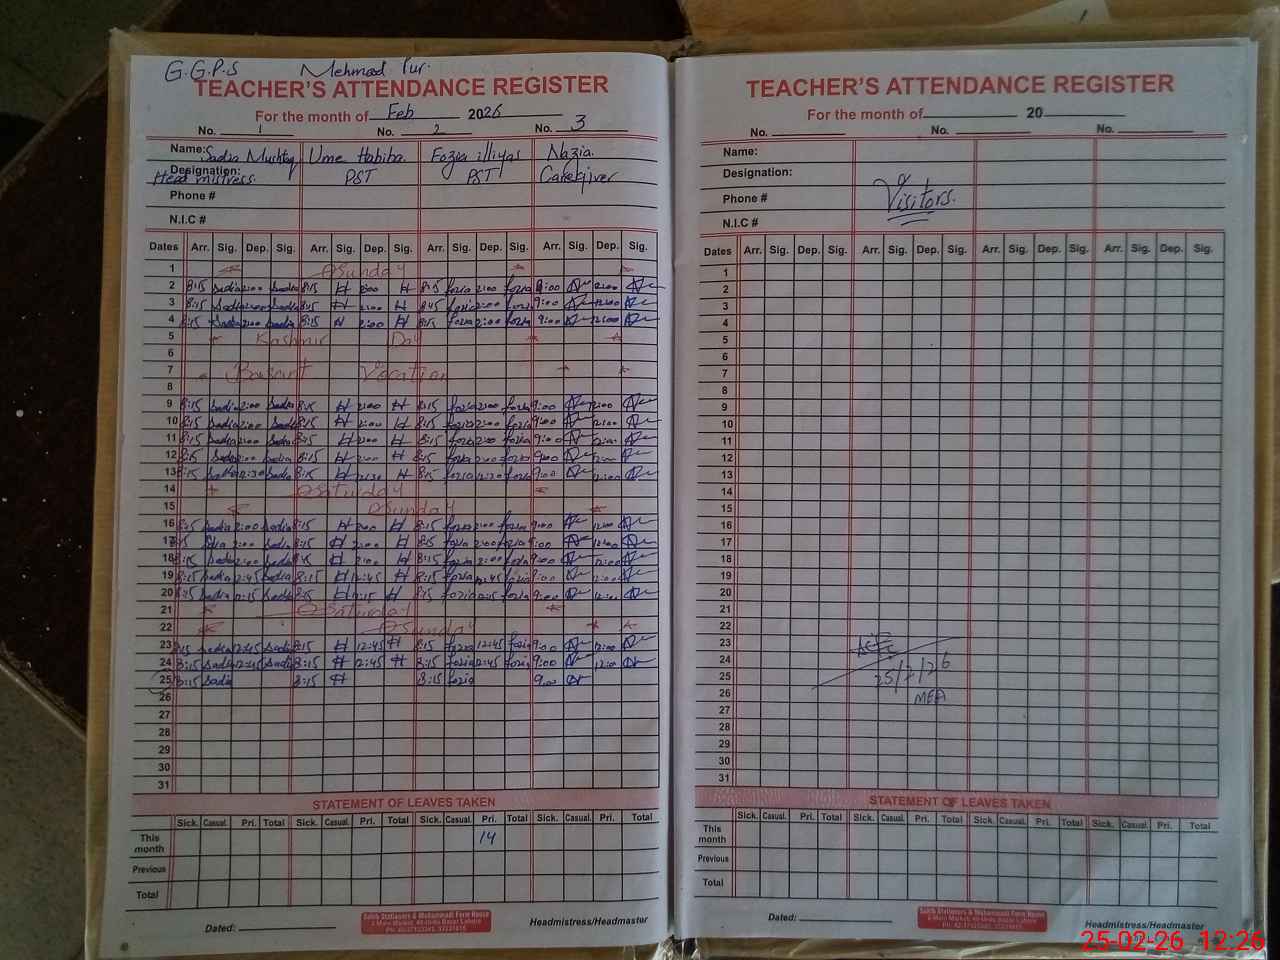 G.G.P.S Mehmood Pur.
TEACHER'S ATTENDANCE REGISTER
For the month of Feb 2026
No. 1 No. 2 No. 3
Name: Sadia Mushtaq Ume Habiba. Fozia illiyas Nazia.
Designation: Head mistress. PST PST Caregiver
Phone #
N.I.C #
Dates Arr. Sig. Dep. Sig. Arr. Sig. Dep. Sig. Arr. Sig. Dep. Sig. Arr. Sig. Dep. Sig.
1 Sunday
2 8:15 Sadia 2:00 Sadia 8:15 H 2:00 H 8:15 fozia 2:00 fozia 9:00 12:00
3 8:15 Sadia 2:00 Sadia 8:15 H 2:00 H 8:15 fozia 2:00 fozia 9:00 12:00
4 8:15 Sadia 2:00 Sadia 8:15 H 2:00 H 8:15 fozia 2:00 fozia 9:00 12:00
5 Kashmir Day
6
7 Basant Vacation
8
9 8:15 Sadia 2:00 Sadia 8:15 H 2:00 H 8:15 fozia 2:00 fozia 9:00 12:00
10 8:15 Sadia 2:00 Sadia 8:15 H 2:00 H 8:15 fozia 2:00 fozia 9:00 12:00
11 8:15 Sadia 2:00 Sadia 8:15 H 2:00 H 8:15 fozia 2:00 fozia 9:00 12:00
12 8:15 Sadia 2:00 Sadia 8:15 H 2:00 H 8:15 fozia 2:00 fozia 9:00 12:00
13 8:15 Sadia 12:30 Sadia 8:15 H 12:30 H 8:15 fozia 12:30 fozia 9:00 12:00
14 Saturday
15 Sunday
16 8:15 Sadia 2:00 Sadia 8:15 H 2:00 H 8:15 fozia 2:00 fozia 9:00 12:00
17 8:15 Sadia 2:00 Sadia 8:15 H 2:00 H 8:15 fozia 2:00 fozia 9:00 12:00
18 8:15 Sadia 2:00 Sadia 8:15 H 2:00 H 8:15 fozia 2:00 fozia 9:00 12:00
19 8:15 Sadia 12:45 Sadia 8:15 H 12:45 H 8:15 fozia 12:45 fozia 9:00 12:00
20 8:15 Sadia 12:15 Sadia 8:15 H 12:15 H 8:15 fozia 12:15 fozia 9:00 12:00
21 Saturday
22 Sunday
23 8:15 Sadia 12:45 Sadia 8:15 H 12:45 H 8:15 fozia 12:45 fozia 9:00 12:00
24 8:15 Sadia 12:45 Sadia 8:15 H 12:45 H 8:15 fozia 12:45 fozia 9:00 12:00
25 8:15 Sadia 8:15 H 8:15 fozia 9:00
26
27
28
29
30
31
STATEMENT OF LEAVES TAKEN
Sick. Casual. Pri. Total Sick. Casual. Pri. Total Sick. Casual. Pri. Total Sick. Casual. Pri. Total
This month 14
Previous
Total
Dated:
Headmistress/Headmaster
TEACHER'S ATTENDANCE REGISTER
For the month of 20
No. No. No.
Name:
Designation:
Phone # Visitors.
N.I.C #
Dates Arr. Sig. Dep. Sig. Arr. Sig. Dep. Sig. Arr. Sig. Dep. Sig. Arr. Sig. Dep. Sig.
1
2
3
4
5
6
7
8
9
10
11
12
13
14
15
16
17
18
19
20
21
22
23
24
25 25/2/26
26 MEA
27
28
29
30
31
STATEMENT OF LEAVES TAKEN
Sick. Casual. Pri. Total Sick. Casual. Pri. Total Sick. Casual. Pri. Total Sick. Casual. Pri. Total
This month
Previous
Total
Dated:
Headmistress/Headmaster
25-02-26 12:26